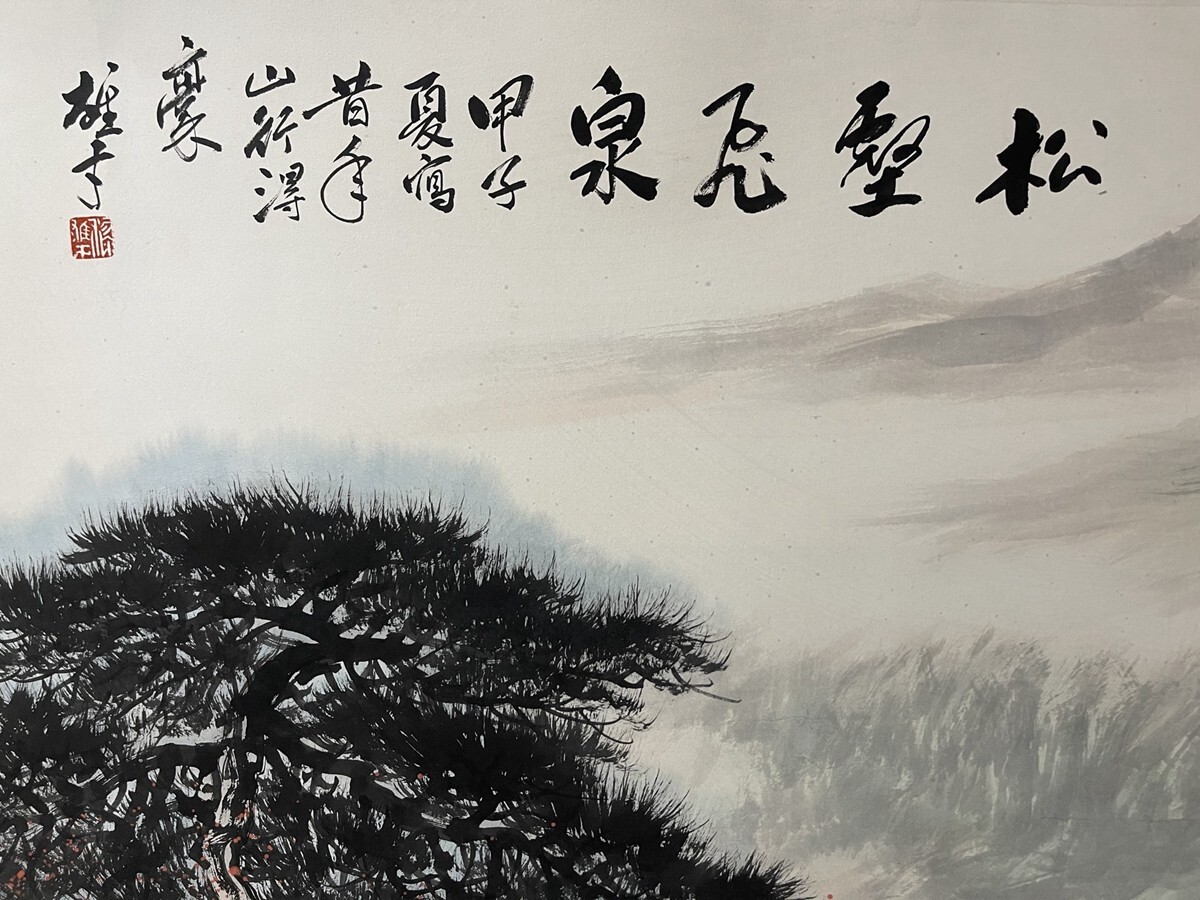 松壑飛泉
甲子
夏寫
昔年
山行得
稾
雄才